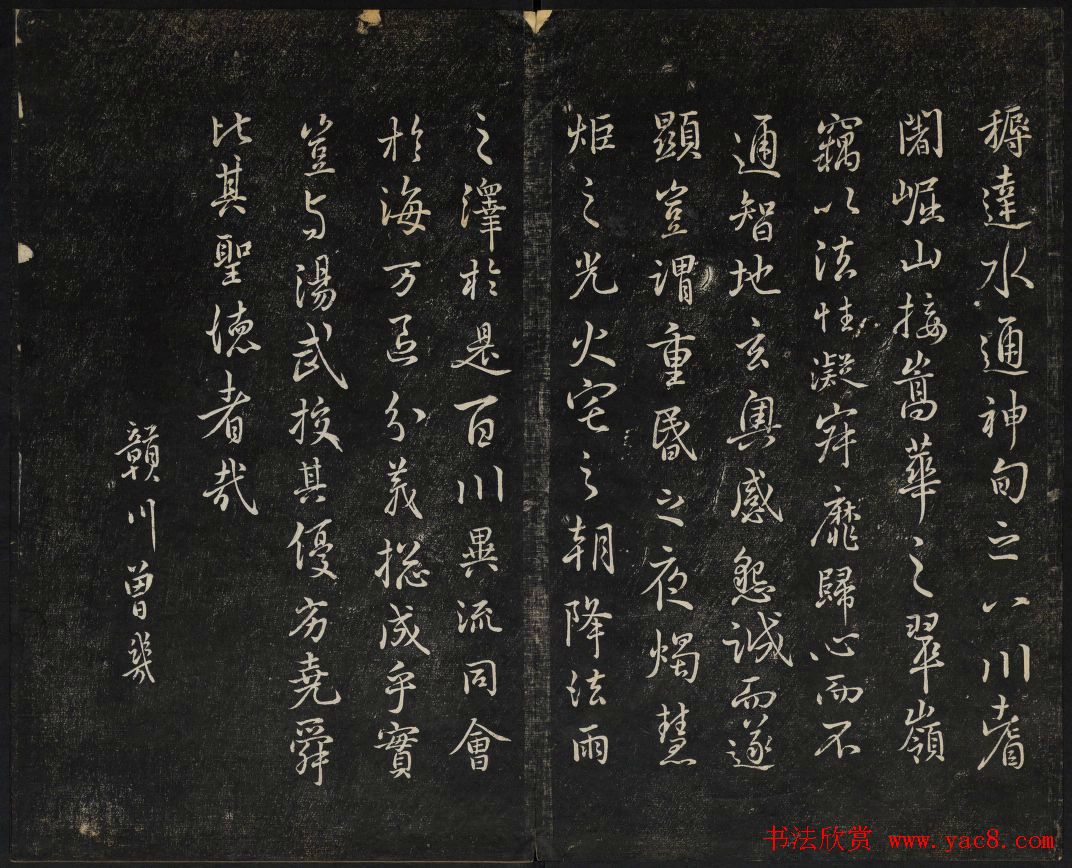 耨達水通神甸之八川耆
闍崛山接嵩華之翠嶺
竊以法性凝寂靡歸心而不
通智地玄奧感懇誠而遂
顯豈謂重昬之夜燭慧
炬之光火宅之朝降法雨
之澤於是百川異流同會
於海万區分義揔成乎實
豈与湯武挍其優劣堯舜
比其聖德者哉
贛川曾幾
书法欣赏 www.yac8.com